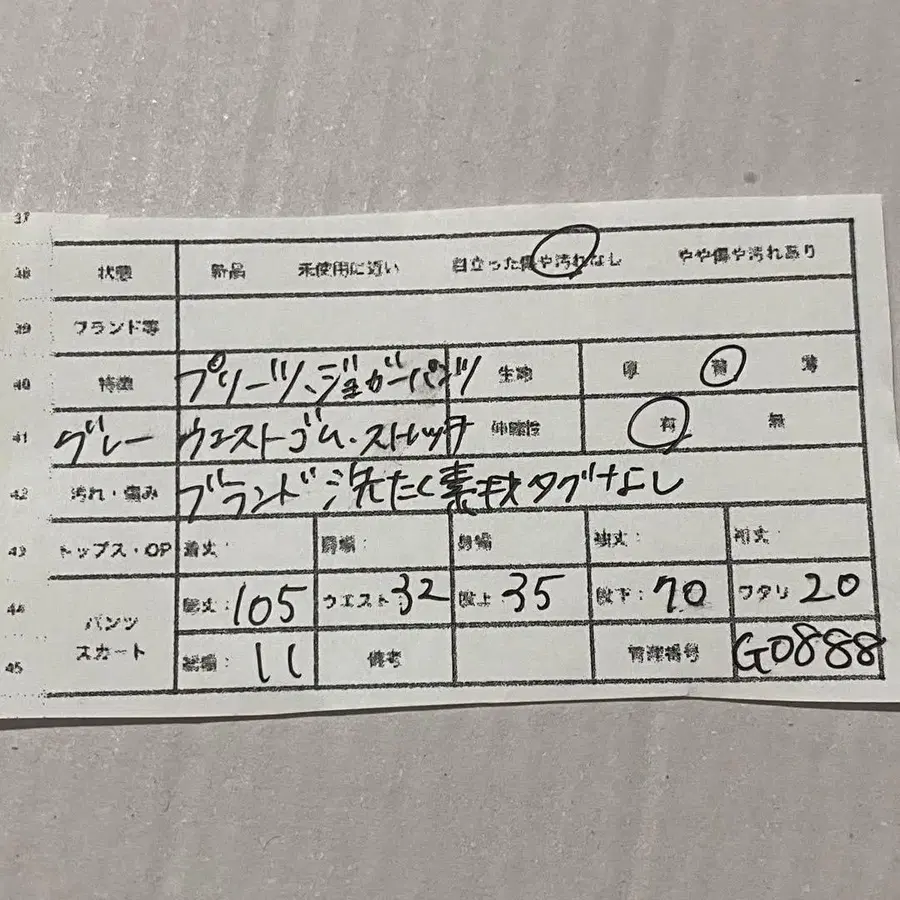 37
38 状態 新品 未使用に近い 目立った傷や汚れなし やや傷や汚れあり
39 ブランド等
40 特徴 プリーツ、ジョガーパンツ 生地 厚 普 薄
41 グレー ウエストゴム・ストレッチ 伸縮性 有 無
42 汚れ・傷み ブランド 洗たく素材タグなし
43 トップス・OP 着丈: 肩幅: 身幅 袖丈: 裄丈:
44 パンツ 総丈:105 ウエスト:32 股上:35 股下:70 ワタリ 20
45 スカート 裾幅:11 備考 管理番号 G0888